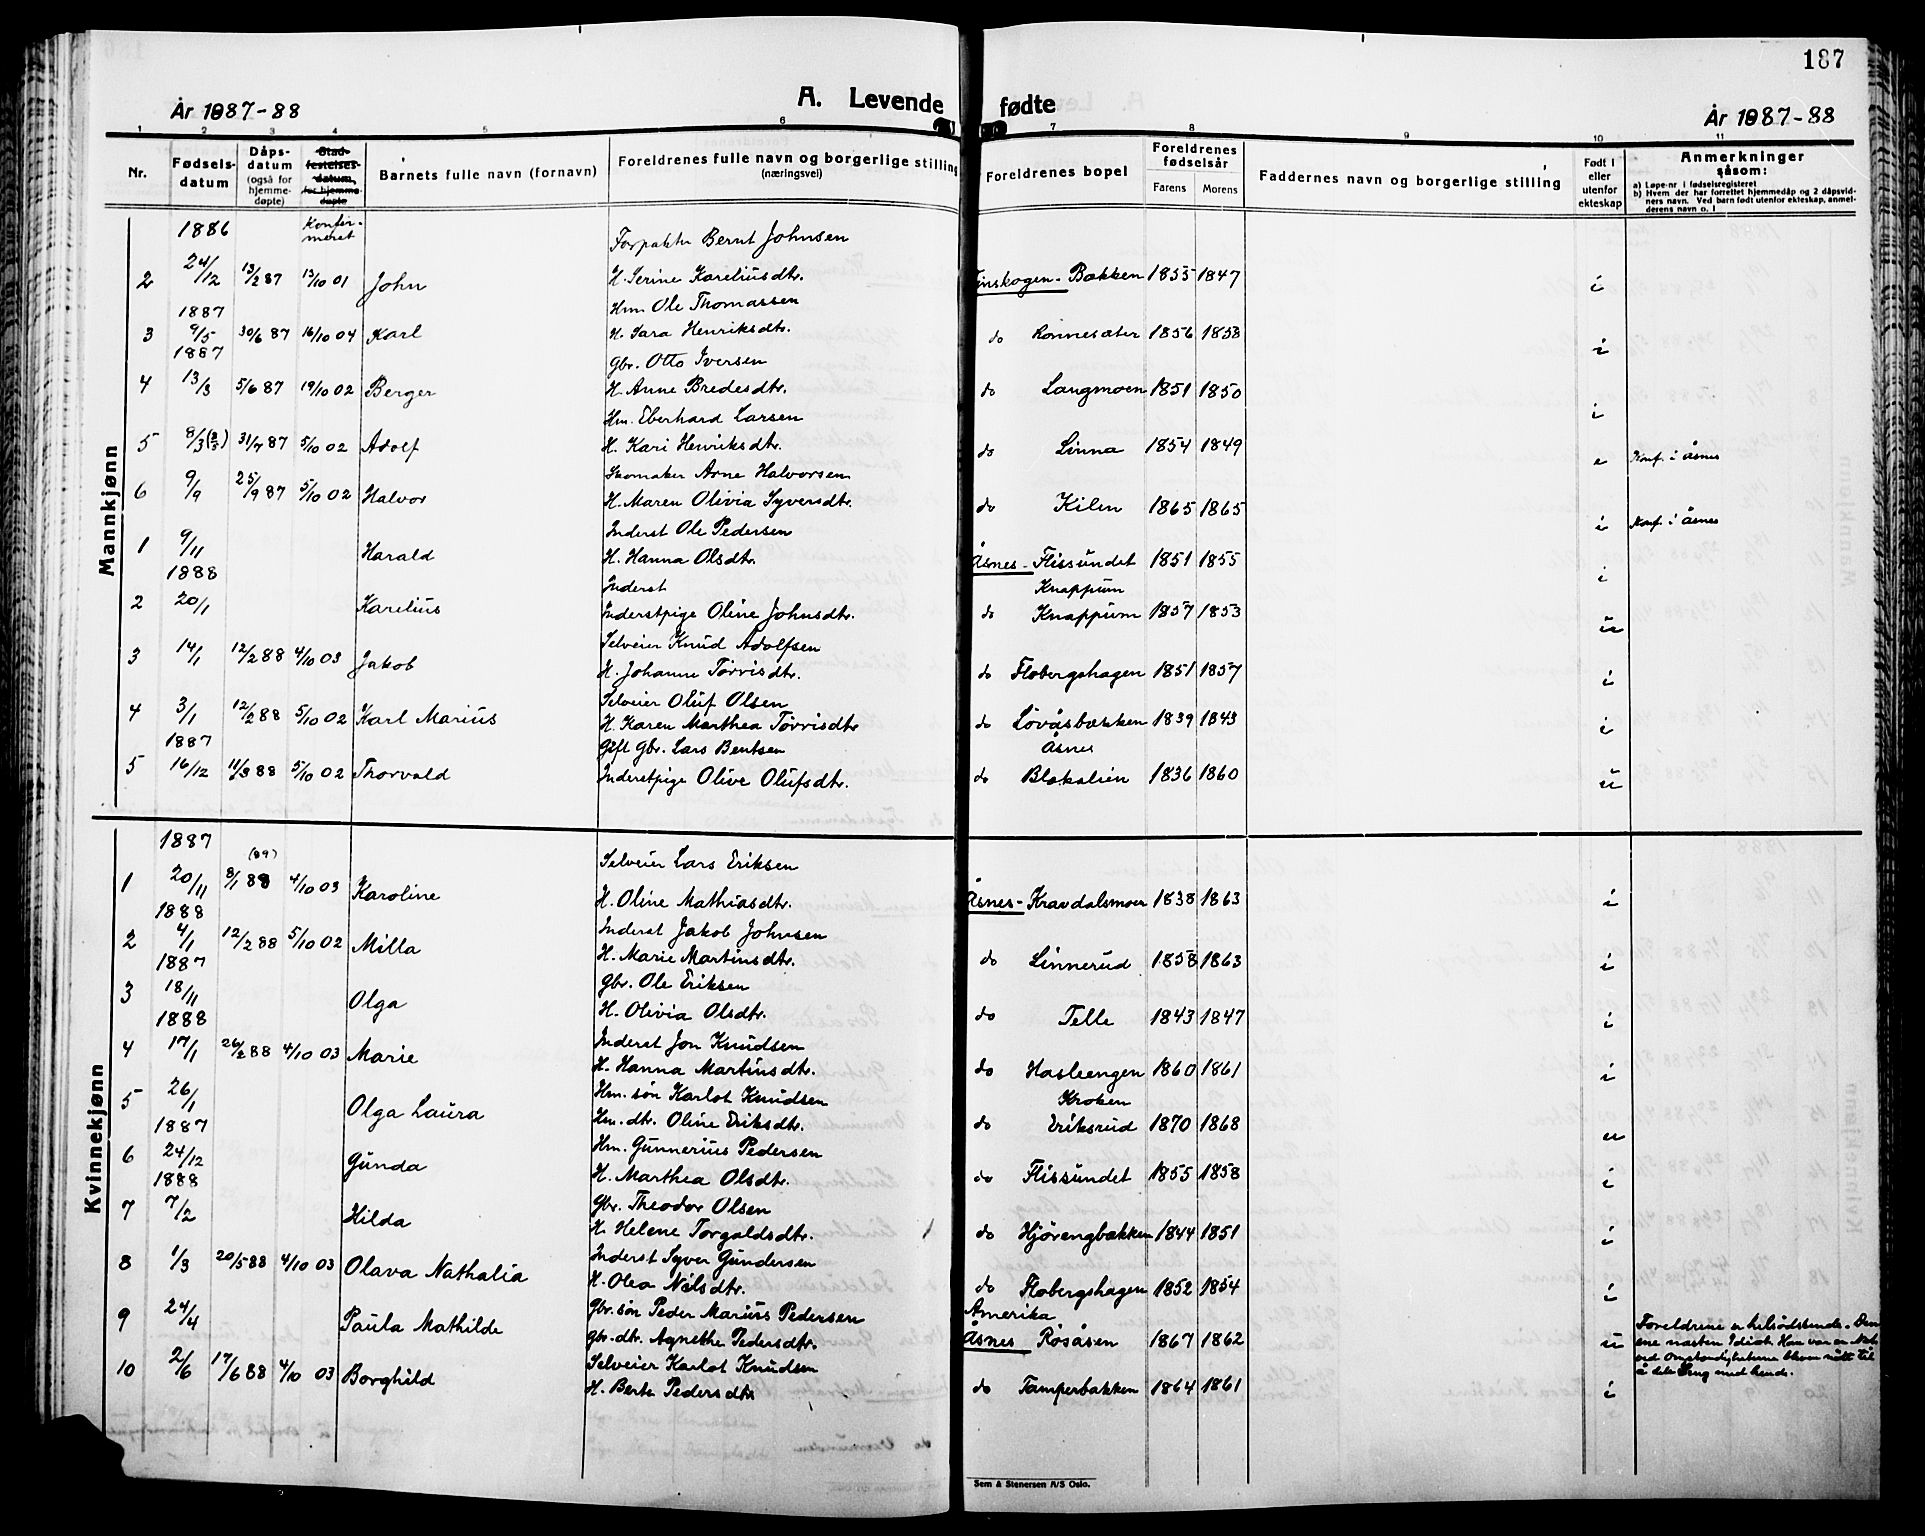 187
År 1887-88 A. Levende fødte År 1887-88
1 2 3 4 5 6 7 8 9 10 11
Nr. Fødsels-datum Dåps-datum (også for hjemme-døpte) Stad-festelses-datum, for hjemme-døpte Barnets fulle navn (fornavn) Foreldrenes fulle navn og borgerlige stilling (næringsvei) Foreldrenes bopel Foreldrenes fødselsår Farens Morens Faddernes navn og borgerlige stilling Født i eller utenfor ekteskap Anmerkninger såsom:
a) Løpe-nr i fødselsregisteret
b) Hvem der har forrettet hjemmedåp og 2 dåpsvid-
ners navn. Ved barn født utenfor ekteskap, anmel-
derens navn o. l
Mannkjønn
1886 Konfir-meret Forpakter Bernt Johnsen
2 24/12 13/2 87 13/10 01 John H. Serine Kareliusdtr. Finskogen - Bækken 1855 1847 i
1887 Hm Ole Thomassen
3 9/5 30/6 87 16/10 04 Karl H. Sara Henriksdtr. do Rønnesæter 1856 1853 i
1887 Gbr. Otto Iversen
4 13/3 5/6 87 19/10 02 Berger H. Anne Bredesdtr. do Langmoen 1851 1850 i
Hm. Eberhard Larsen
5 8/3 31/7 87 5/10 02 Adolf H. Kari Henriksdtr. do Linna 1854 1849 e Konf. i Åsnes
Skomaker Arne Halvorsen
6 9/9 25/9 87 5/10 02 Halvor H. Maren Olivia Syversdtr. do Kilen 1865 1865 i Konf. i Åsnes
Inderst Ole Pedersen
1 9/11 Harald H. Hanna Olsdtr. Åsnes - Flissundet 1851 1855 i
1888 Inderst Knappum
2 20/1 Karelius Inderstpige Oline Johnsdtr. do Knappum 1857 1853 u
Selveier Knud Adolfsen
3 14/1 12/2 88 4/10 03 Jakob H. Johanne Tørrisdtr. do Flobergshagen 1851 1857 i
Selveier Oluf Olsen
4 3/1 12/2 88 5/10 02 Karl Marius H. Karen Marthea Tørrisdtr do Løvåsbækken 1839 1843 i
1887 Gift Gbr. Lars Bentsen Åsnes
5 16/12 11/3 88 5/10 02 Thorvald Inderstpige Olive Olufsdtr. do Blekalien 1836 1860 u
Kvinnekjønn
1887 (89) Selveier Lars Eriksen
1 20/11 8/1 88 4/10 03 Karoline H. Oline Mathiasdtr. Åsnes - Kravdalsmoer 1838 1863 i
1888 Inderst Jakob Johnsen
2 4/1 12/2 88 5/10 02 Milla H. Marie Martinsdtr. do Linnerud 1858 1863 i
1887 Gbr. Ole Eriksen
3 18/11 Olga H. Olivia Olsdtr. do Telle 1843 1847 i
1888 Inderst Jon Knudsen
4 17/1 26/2 88 4/10 03 Marie H. Hanna Martinsdtr. do Hasleengen 1860 1861 i
Hm. søn Karlot Knudsen Kroken
5 26/1 Olga Laura Hm. dtr. Oline Eriksdtr. do Eriksrud 1870 1868 u
1887 Hm. Gunnerius Pedersen
6 24/12 Gunda H. Marthea Olsdtr. do Flissundet 1855 1858 i
1888 Gbr. Theodor Olsen
7 7/2 Hilda H. Helene Torgaldsdtr. do Hjørengbækken 1844 1851 i
Inderst Syver Gundersen
8 1/3 20/5 88 4/10 03 Olava Nathalia H. Olea Nilsdtr. do Flobergshagen 1852 1854 i
Gbr. søn Peder Marius Pedersen Amerika
9 24/4 Paula Mathilde Gbr. dtr. Agnethe Pedersdtr. Åsnes Røsåsen 1867 1862 u
Foreldrene er helsødskende. Den
ene næsten Idiot. Han var en Nat
ved Omstendigheterne bleven nødt til
å dele Seng med hende.
Selveier Karlot Knudsen
10 2/6 17/6 88 4/10 03 Borghild H. Berte Pedersdtr do Tamperbakken 1864 1861 i
Sem & Stenersen A/S Oslo.